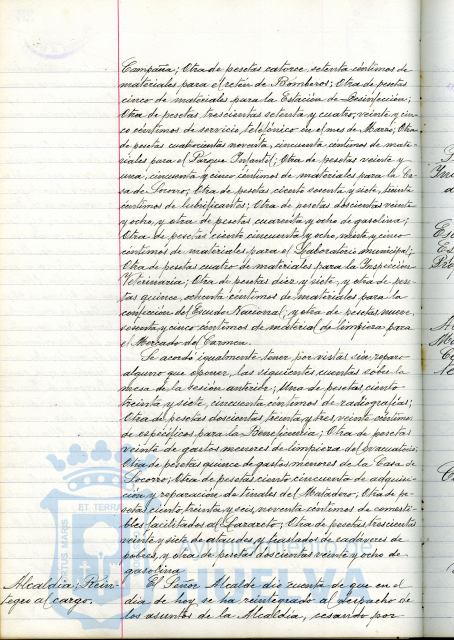 Campaña; Otra de pesetas catorce, setenta céntimos de
materiales para el retén de Bomberos; Otra de pesetas
cinco de materiales para la Estación de Desinfección;
Otra de pesetas trescientas setenta y cuatro, veinte y cin-
co céntimos de servicio telefónico en el mes de Marzo; Otra
de pesetas cuatrocientas noventa, cincuenta céntimos de mate-
riales para el Parque Infantil; Otra de pesetas veinte y
una, cincuenta y cinco céntimos de materiales para la Ca-
sa de Socorro; Otra de pesetas ciento sesenta y siete, treinta
céntimos de lubrificantes; Otra de pesetas doscientas veinte
y ocho, y otra de pesetas cuarenta y ocho de gasolina;
Otra de pesetas ciento cincuenta y ocho, veinte y cinco
céntimos de materiales para el Laboratorio municipal;
Otra de pesetas cuatro de materiales para la Inspección
Veterinaria; Otra de pesetas diez y siete, y otra de pese-
tas quince, ochenta céntimos de materiales para la
confección del Escudo Nacional, y otra de pesetas nueve,
sesenta y cinco céntimos de material de limpieza para
el Mercado del Carmen.
Se acordó igualmente tener por vistas sin reparo
alguno que oponer, las siguientes cuentas sobre la
mesa de la sesión anterior; Una de pesetas ciento
treinta y siete, cincuenta céntimos de radiografías;
Otra de pesetas doscientas treinta y tres, veinte céntimos
de específicos para la Beneficencia; Otra de pesetas
veinte de gastos menores de limpieza del evacuatorio;
Otra de pesetas quince de gastos menores de la Casa de
Socorro; Otra de pesetas ciento cincuenta de adquisi-
ción y reparación de útiles del Matadero; Otra de pe-
setas ciento treinta y seis, noventa céntimos de comesti-
bles facilitados al Lazareto; Otra de pesetas trescientas
veinte y siete de ataudes y traslados de cadáveres de
pobres, y otra de pesetas doscientas veinte y ocho de
gasolina.
Alcaldía: Rein-
tegro al cargo.
El Señor Alcalde dió cuenta de que en el
día de hoy se ha reintegrado al despacho de
los asuntos de la Alcaldía, cesando por
ET TERRA